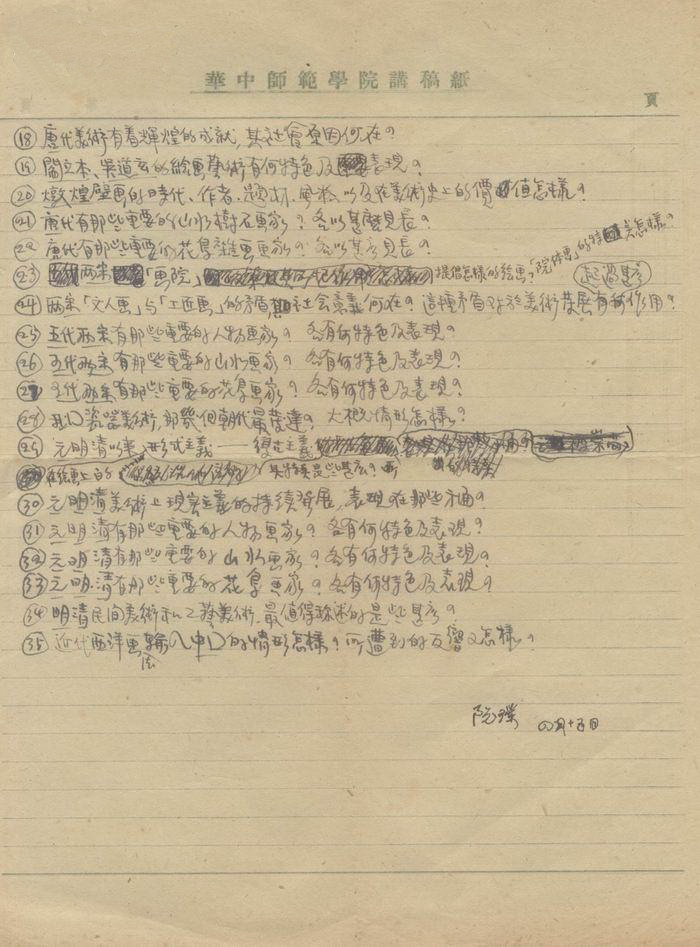 華中師範學院講稿紙
頁
⑱ 唐代美術有着輝煌的成就，其社會原因何在？
⑲ 閻立本、吳道玄的繪画藝術有何特色及表現？
⑳ 燉煌壁画的時代、作者、題材、風格以及在美術史上的價值怎樣？
㉑ 唐代有那些重要的山水樹石画家？各以甚麼見長？
㉒ 唐代有那些重要的花鳥雜画画家？各以甚么見長？
㉓ 兩宋「画院」提倡怎樣的繪画？「院体画」的特美怎樣？
㉔ 兩宋「文人画」与「工匠画」的矛盾社会意義何在？這種矛盾对於美術發展有何作用？
㉕ 五代兩宋有那些重要的人物画家？各有何特色及表現？
㉖ 五代兩宋有那些重要的山水画家？各有何特色及表現？
㉗ 五代兩宋有那些重要的花鳥画家？各有何特色及表現？
㉘ 瓷器美術，那幾個朝代最發達？大概情形怎樣？
㉙ 元明清以來，形式主義——復古主義
在繪画上的 其特徵是些甚么？
㉚ 元明清美術上現实主義的持续發展，表現在那些方面？
㉛ 元明清有那些重要的人物画家？各有何特色及表現？
㉜ 元明清有那些重要的山水画家？各有何特色及表現？
㉝ 元明清有那些重要的花鳥画家？各有何特色及表現？
㉞ 明清民间美術和工藝美術，最值得称述的是些甚么？
㉟ 近代西洋画輸入中国的情形怎樣？所遭到的反響又怎樣？
阮璞 四月十五日